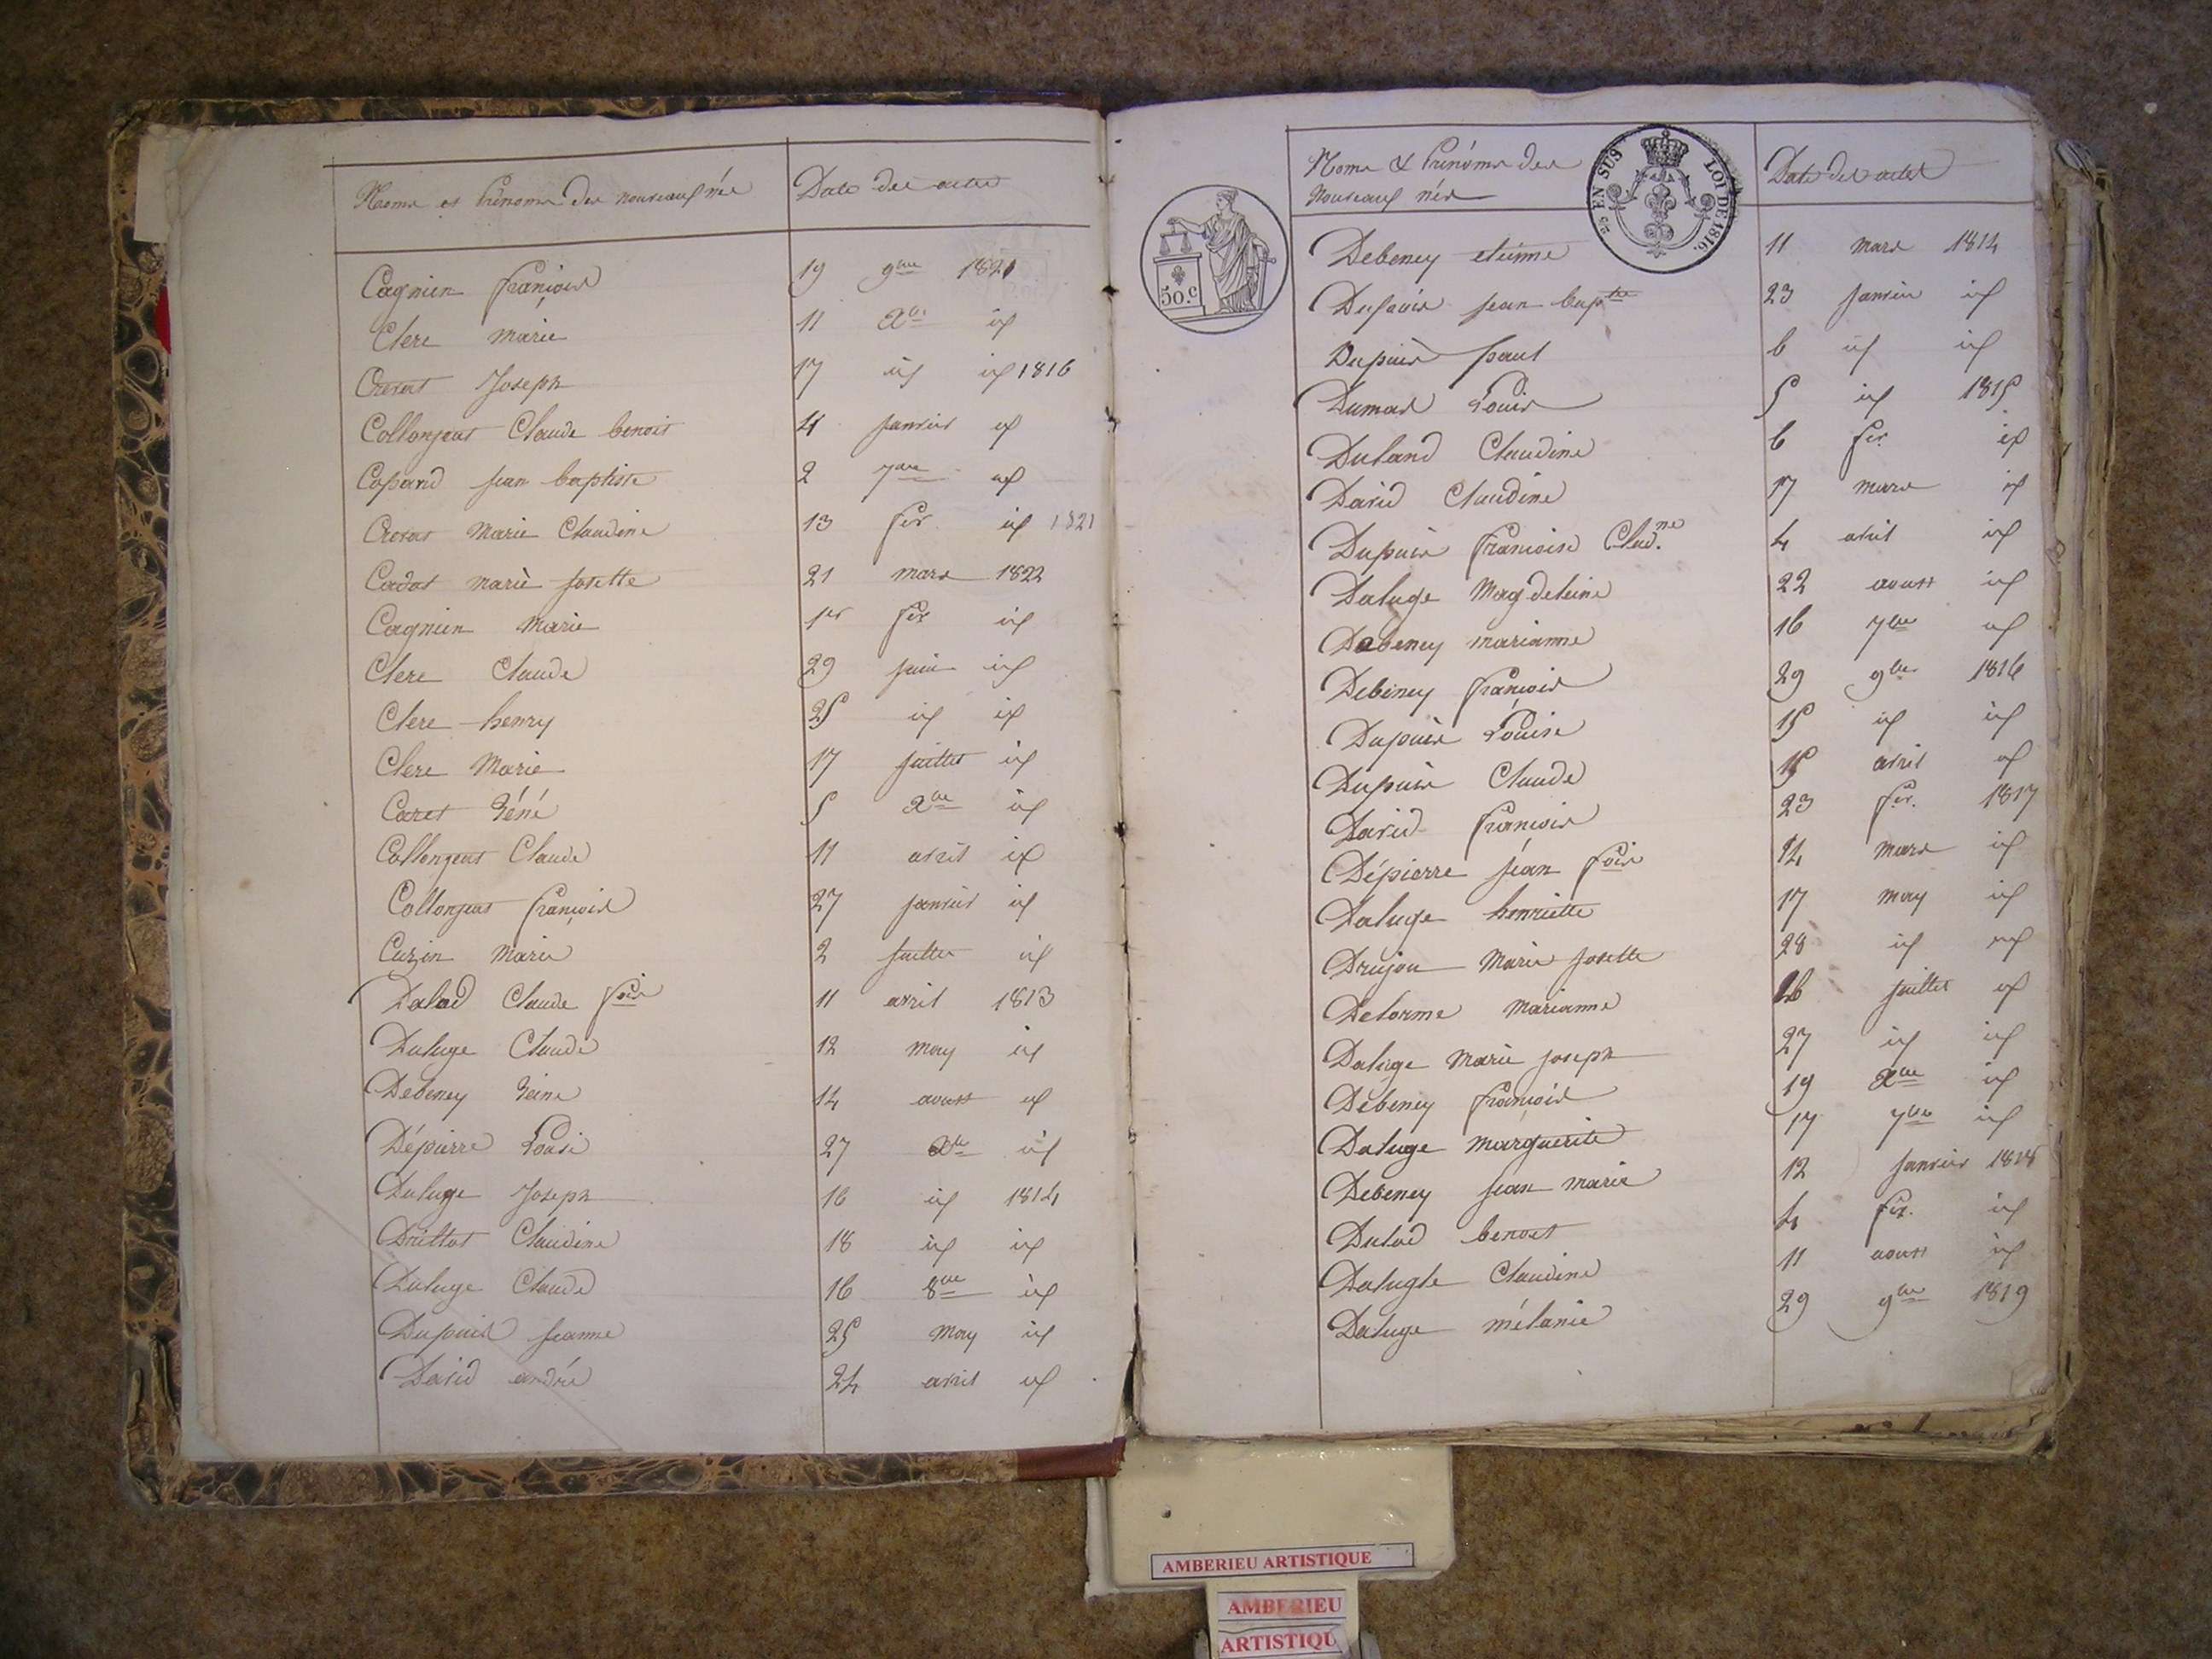 Noms et Prénoms des nouveaux née
Date des actes
Cagnien françois 19 9bre 1821
Clere marie 11 Xbre id
Cresat Joseph 17 id id 1816
Collonjeat Claude benoit 4 janvier id
Copard jean baptiste 2 7bre id
Cresat Marie Claudine 13 fer id 1821
Cadot marie josette 21 mars 1822
Cagnien Marie 1er fer id
Clere Claude 29 juin id
Clere henry 25 id id
Clere Marie 17 juillet id
Caret Réné 5 Xbre id
Collonjeat Claude 11 avril id
Collonjeat françois 27 janvier id
Cuzin Marie 2 juillet id
Dalod Claude fois 11 avril 1813
Daluge Claude 12 may id
Debeney Reine 14 aoust id
Dépierre Louise 27 Xbre id
Daluge Joseph 16 id 1814
Druittot Claudine 18 id id
Daluge Claude 16 8bre id
Dupuis jeanne 25 may id
David andré 24 avril id
Noms & Prénoms des
Nouveaux nés
Date des actes
50.c
EN SUS LOI DE 1816.
Debeney etienne 11 mars 1814
Dupuis jean bapte 23 janvier id
Dupuis paul 6 id id
Dumas Louis 5 id 1815
Duland Claudine 6 fer id
David Claudine 17 mars id
Dupuis francoise Claud.ne 4 avril id
Daluge Magdeleine 22 aoust id
Debeney marianne 16 7bre id
Debeney françois 29 9bre 1816
Dupuis Louise 15 id id
Dupuis Claude 15 avril id
David françois 23 fer. 1817
Dépierre jean fois 14 mars id
Daluge henriette 17 may id
Drujon Marie josette 28 id id
Delorme Marianne 26 juillet id
Daluge Marie joseph 27 id id
Debeney françois 19 Xbre id
Daluge marguerite 17 7bre id
Debeney jean marie 12 janvier 1818
Dalod benoit 4 fer. id
Dalugle Claudine 11 aoust id
Daluge mélanie 29 9bre 1819
AMBERIEU ARTISTIQUE
AMBERIEU
ARTISTIQU